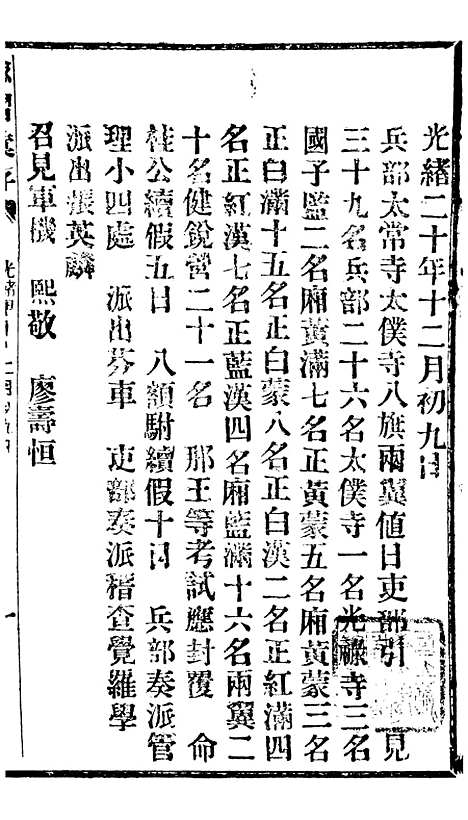 光緒二十年十二月初九日
兵部太常寺太僕寺八旗兩翼值日吏部引 見
三十九名兵部二十六名太僕寺一名光祿寺三名
國子監二名廂黃滿七名正黃蒙五名廂黃蒙三名
正白滿十五名正白蒙八名正白漢二名正紅滿四
名正紅漢七名正藍漢四名廂藍滿十六名兩翼二
十名健銳營二十一名 那王等考試應封覆 命
桂公續假五日 八額駙續假十日 兵部奏派管
理小四處 派出芬車 吏部奏派稽查覺羅學
派出張英麟
召見軍機 熙敬 廖壽恒
光緒 十二月初九日
一